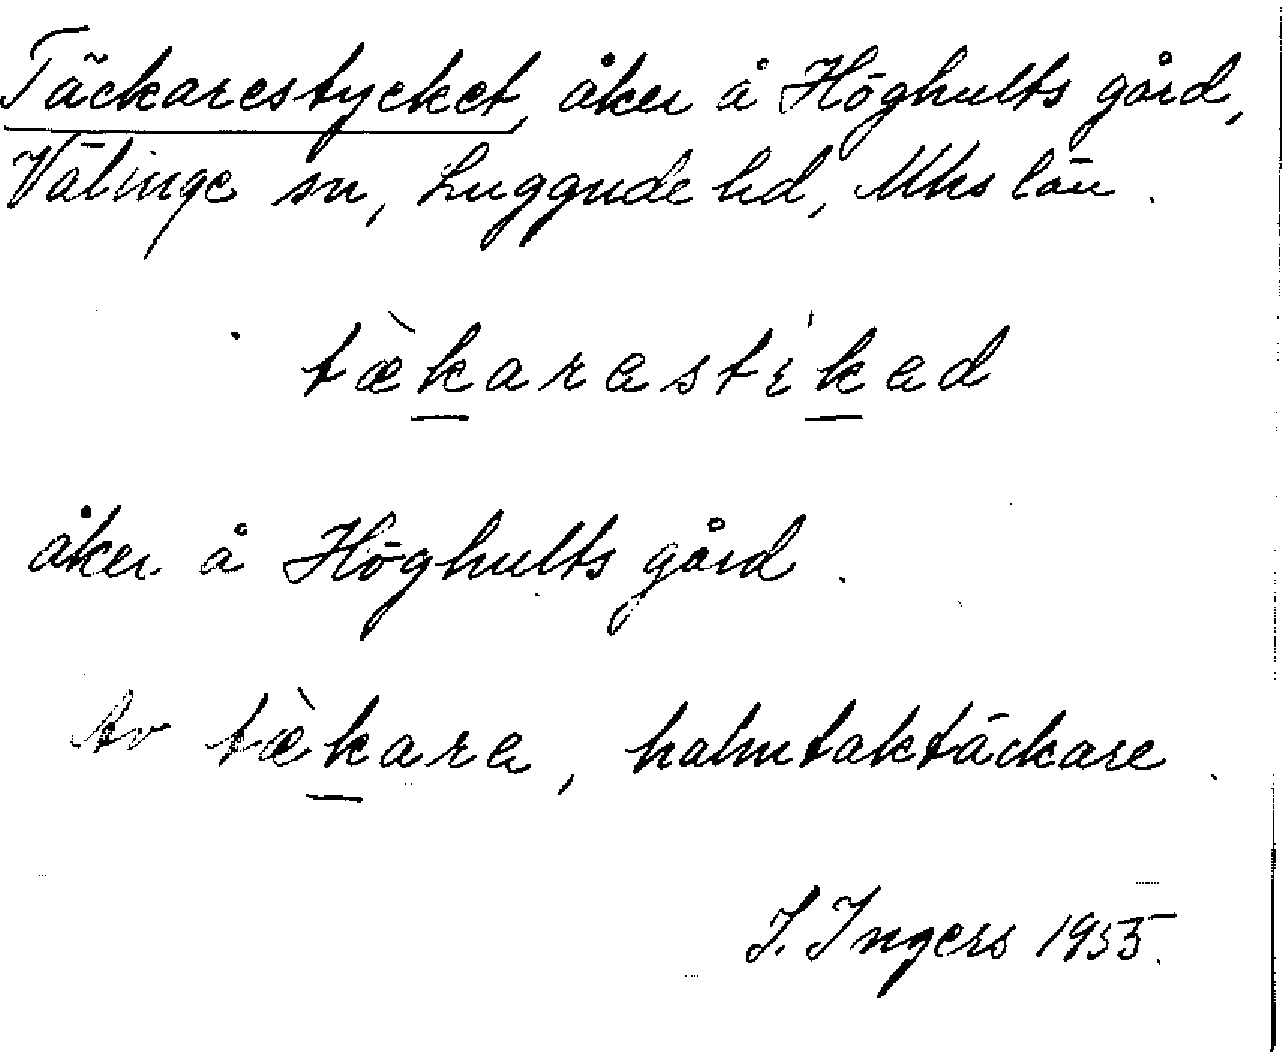 Täckarestycket, åker å Höghults gård,
Välinge sn, Luggude hd, Mhs län.
tæ̀karastíkad
åker å Höghults gård.
Av tæ̀kara, halmtaktäckare.
I. Ingers 1955.